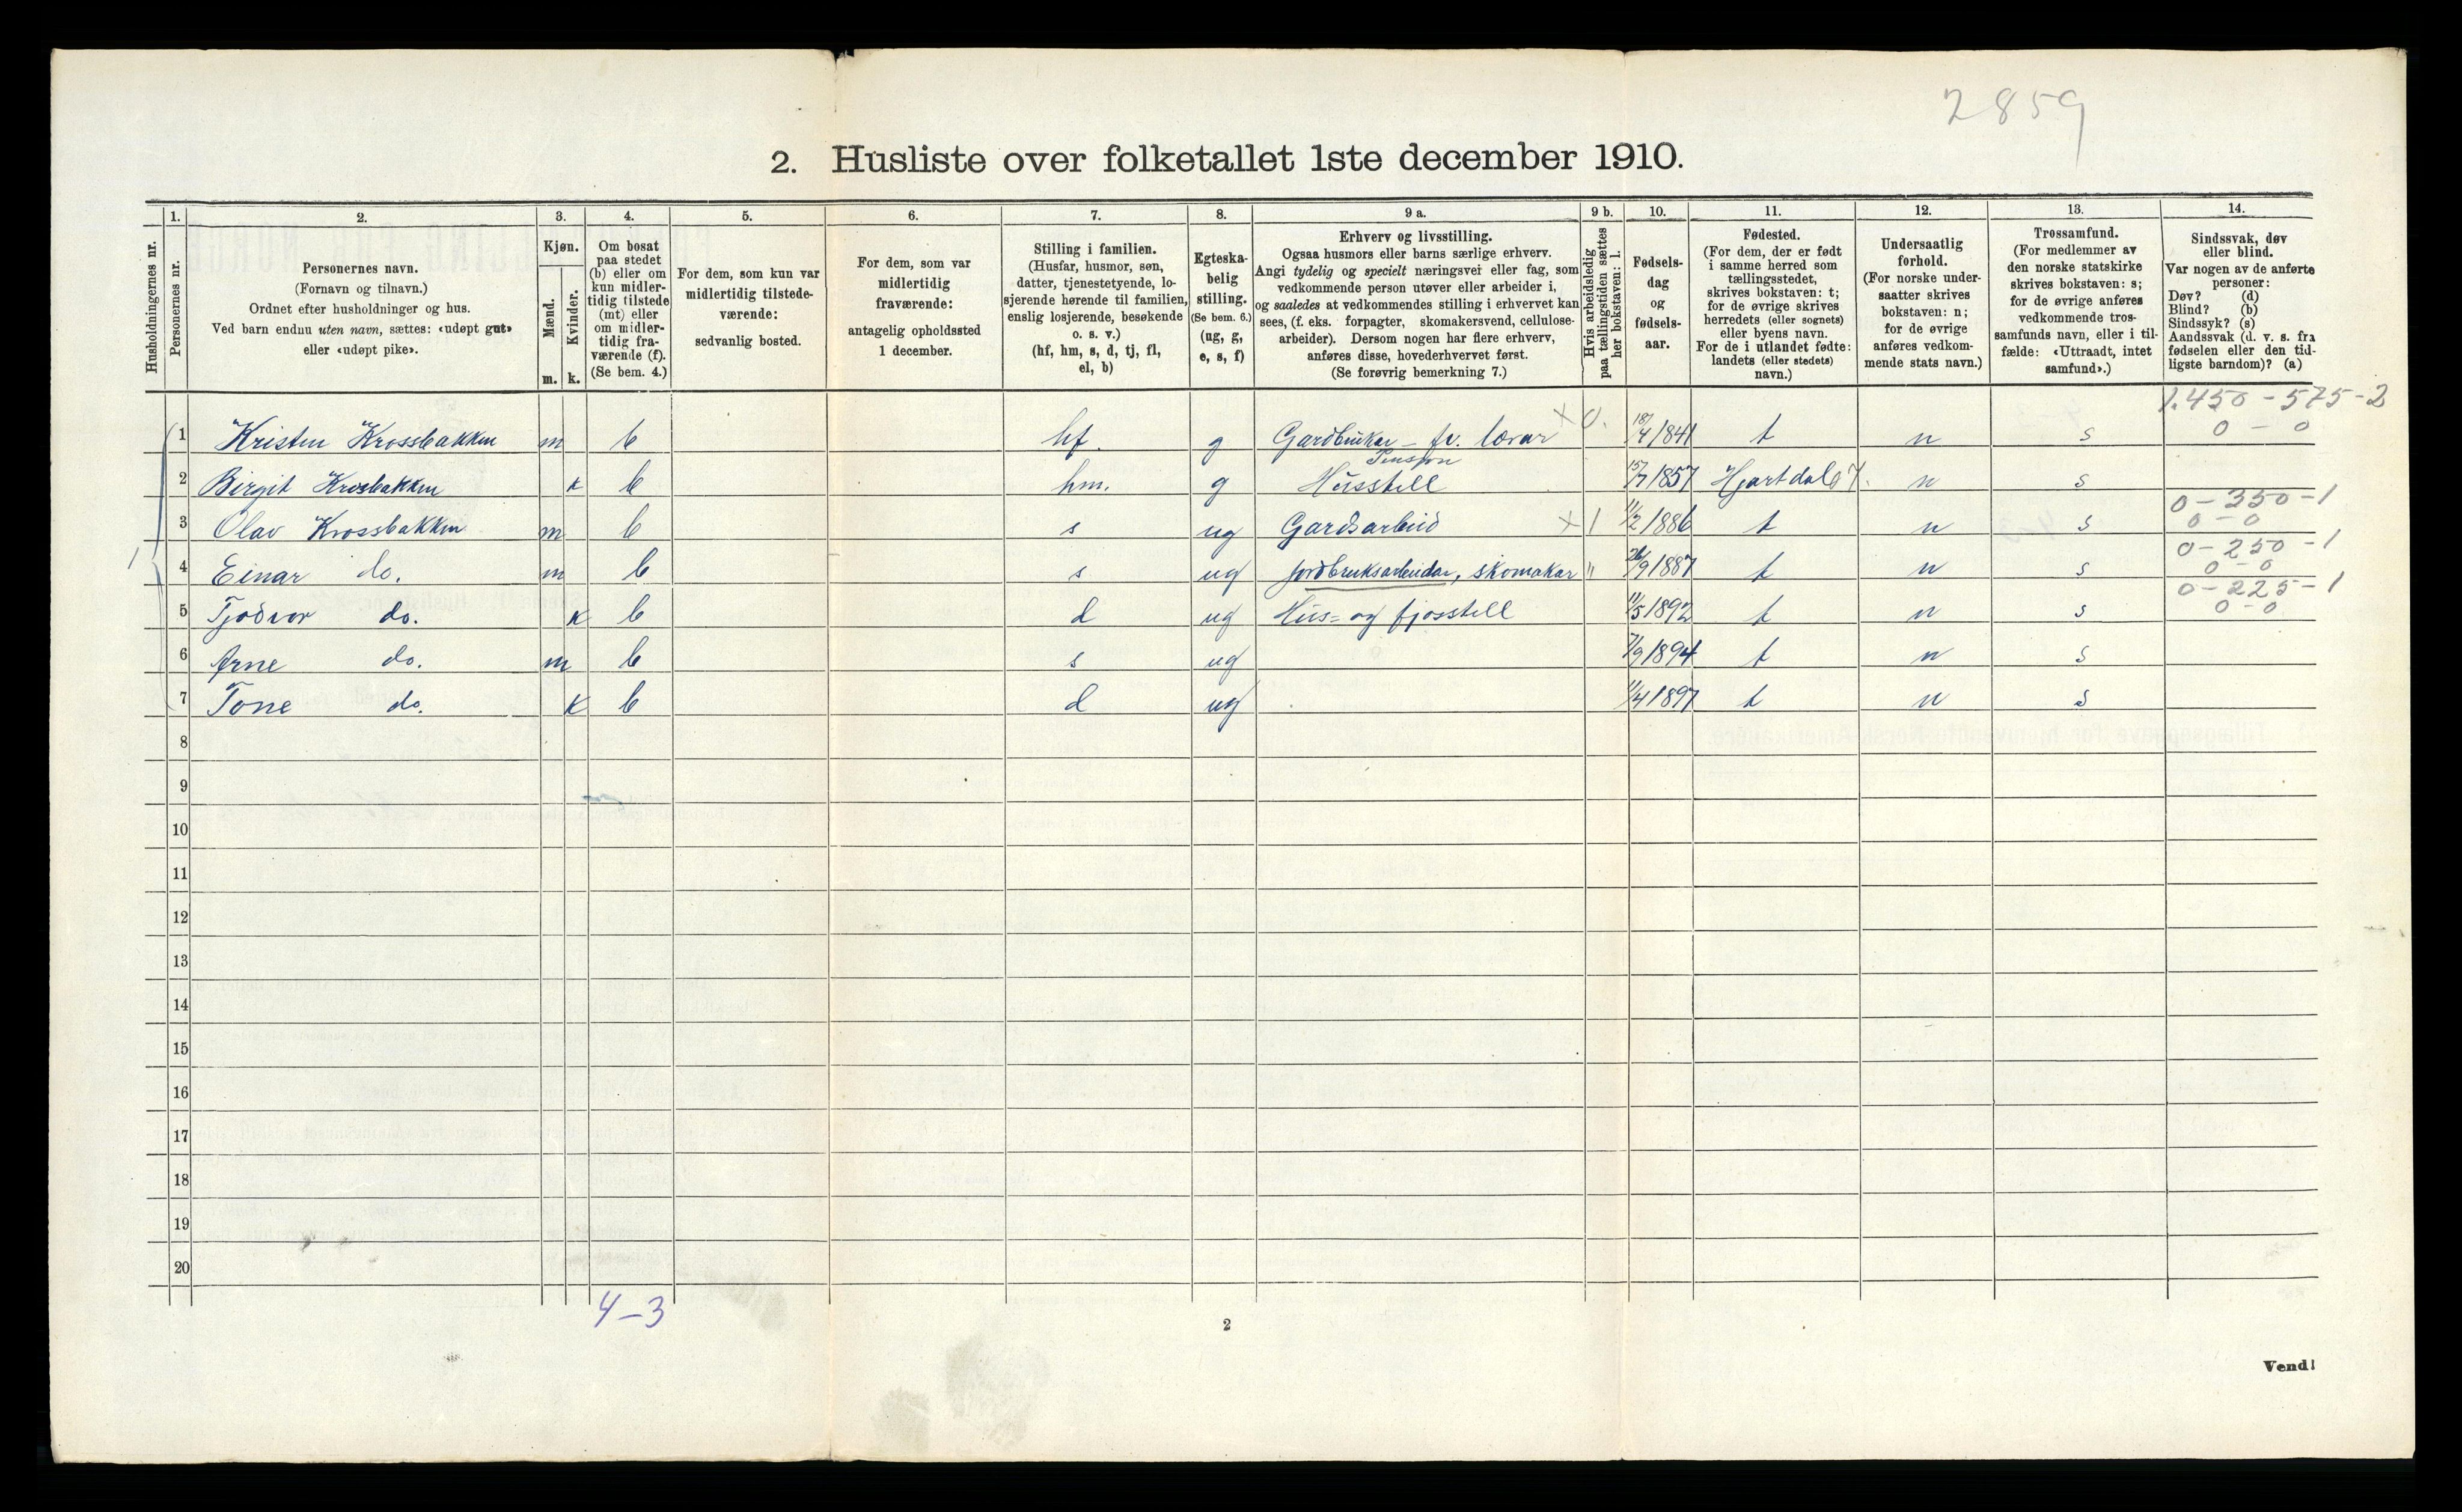 2859
2. Husliste over folketallet 1ste december 1910.
Husholdningernes nr.
1. Personernes nr.
2. Personernes navn.
(Fornavn og tilnavn.)
Ordnet efter husholdninger og hus.
Ved barn endnu uten navn, sættes: «udøpt gut»
eller «udøpt pike».
3. Kjøn.
Mænd. m.
Kvinder. k.
4. Om bosat
paa stedet
(b) eller om
kun midler-
tidig tilstede
(mt) eller
om midler-
tidig fra-
værende (f).
(Se bem. 4.)
5. For dem, som kun var
midlertidig tilstede-
værende:
sedvanlig bosted.
6. For dem, som var
midlertidig
fraværende:
antagelig opholdssted
1 december.
7. Stilling i familien.
(Husfar, husmor, søn,
datter, tjenestetyende, lo-
sjerende hørende til familien,
enslig losjerende, besøkende
o. s. v.)
(hf, hm, s, d, tj, fl,
el, b)
8. Egteska-
belig
stilling.
(Se bem. 6.)
(ug, g,
e, s, f)
9 a. Erhverv og livsstilling.
Ogsaa husmors eller barns særlige erhverv.
Angi tydelig og specielt næringsvei eller fag, som
vedkommende person utøver eller arbeider i,
og saaledes at vedkommendes stilling i erhvervet kan
sees, (f. eks. forpagter, skomakersvend, cellulose-
arbeider). Dersom nogen har flere erhverv,
anføres disse, hovederhvervet først.
(Se forøvrig bemerkning 7.)
9 b. Hvis arbeidsledig
paa tællingstiden sættes
her bokstaven: l.
10. Fødsels-
dag
og
fødsels-
aar.
11. Fødested.
(For dem, der er født
i samme herred som
tællingsstedet,
skrives bokstaven: t;
for de øvrige skrives
herredets (eller sognets)
eller byens navn.
For de i utlandet fødte:
landets (eller stedets)
navn.)
12. Undersaatlig
forhold.
(For norske under-
saatter skrives
bokstaven: n;
for de øvrige
anføres vedkom-
mende stats navn.)
13. Trossamfund.
(For medlemmer av
den norske statskirke
skrives bokstaven: s;
for de øvrige anføres
vedkommende tros-
samfunds navn, eller i til-
fælde: «Uttraadt, intet
samfund».)
14. Sindssvak, døv
eller blind.
Var nogen av de anførte
personer:
Døv? (d)
Blind? (b)
Sindssyk? (s)
Aandssvak (d. v. s. fra
fødselen eller den tid-
ligste barndom)? (a)
1.450-575-2
1 Kristen Krossbakken m b hf. g Gardbrukar - fv. lærar x 0. 18/4 1841 t n s 0 - 0
Pension
2 Birgit Krosbakken k b hm. g Husstell 15/7 1857 Hjartdal 07. n s
0-350-1
3 Olav Krossbakken m b s ug Gardsarbeid x 1 11/2 1886 t n s 0-0
0-250-1
1 4 Einar do. m b s ug Jordbruksarbeidar, skomakar " 26/9 1887 t n s 0-0
0-225-1
5 Tjodvor do. k b d ug Hus= og fjosstell 11/5 1892 t n s 0-0
6 Arne do. m b s ug 7/9 1894 t n s
7 Tone do. k b d ug 11/4 1897 t n s
8
9
10
11
12
13
14
15
16
17
18
19
20
4-3
2
Vend!